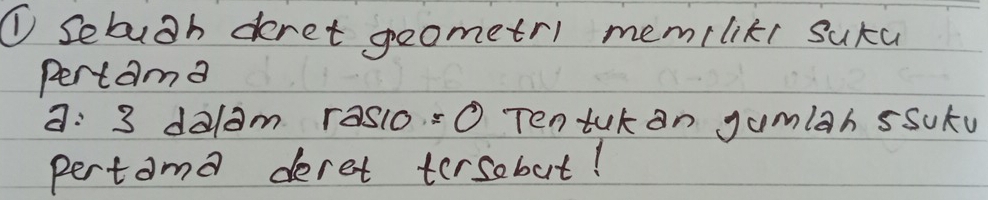 ① Sebuah deret geometri memiliki suku
pertama
a: 3 dalam rasio = 0 Tentukan jumlah 5 suku
pertama deret tersebut!